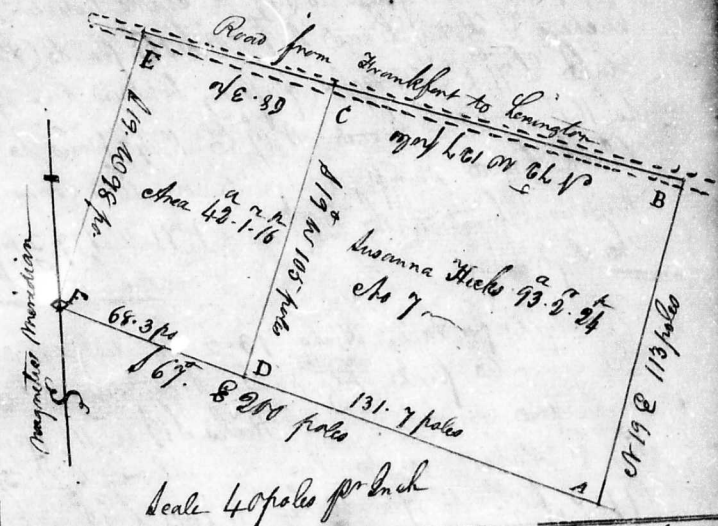 Road from Frankfort to Lexington
E
68.3 po
C
N 72 W 127 poles
B
S 19 W 98 po.
Area 42.1.16
a r p
S 19 W 105 poles
Susanna Hicks 93.2.24
a r p
No 7
N 19 E 113 poles
magnetics Meridian
F
68.3 po
D
S 67.
E 200 poles
131.7 poles
A
Scale 40 poles pr Inch